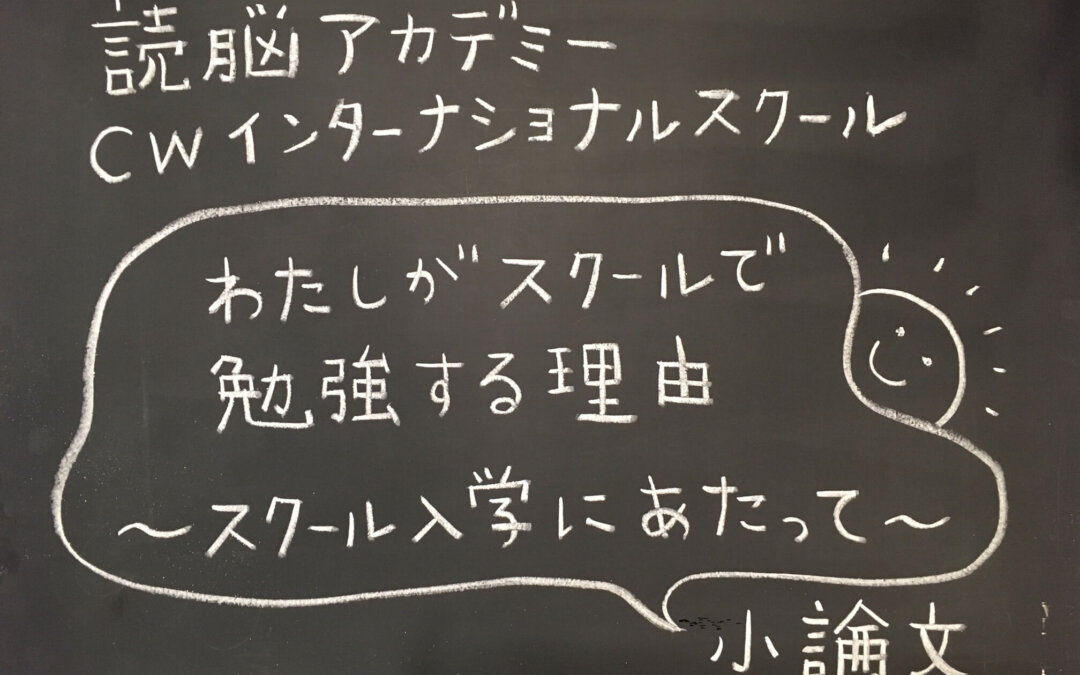 読脳アカデミー
CWインターナショナルスクール
わたしがスクールで
勉強する理由
～スクール入学にあたって～
小論文